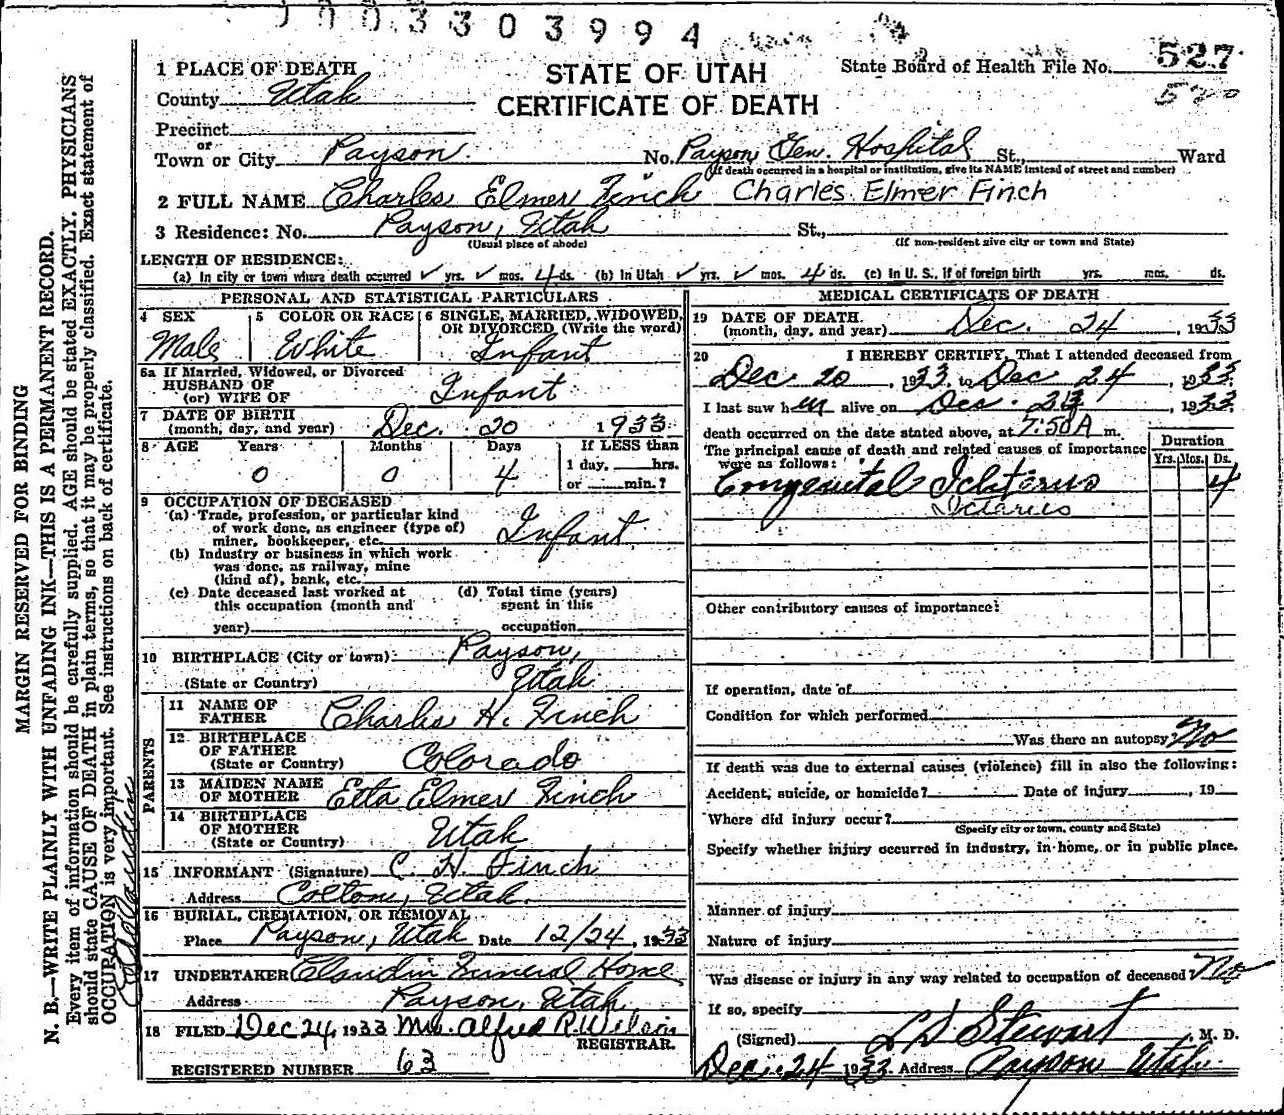 0003303994
STATE OF UTAH
CERTIFICATE OF DEATH
State Board of Health File No. 527
520
1 PLACE OF DEATH
County Utah
Precinct
or
Town or City Payson. No. Payson Gen. Hospital St., Ward
(If death occurred in a hospital or institution, give its NAME instead of street and number)
2 FULL NAME Charles Elmer Finch Charles Elmer Finch
3 Residence: No. Payson, Utah St.,
(Usual place of abode) (If non-resident give city or town and State)
LENGTH OF RESIDENCE:
(a) In city or town where death occurred ✓ yrs. ✓ mos. 4 ds. (b) In Utah ✓ yrs. ✓ mos. 4 ds. (c) In U. S., if of foreign birth yrs. mos. ds.
PERSONAL AND STATISTICAL PARTICULARS
4 SEX 5 COLOR OR RACE 6 SINGLE, MARRIED, WIDOWED,
OR DIVORCED (Write the word)
Male White Infant
6a If Married, Widowed, or Divorced
HUSBAND OF
(or) WIFE OF Infant
7 DATE OF BIRTH
(month, day, and year) Dec. 20 1933
8 AGE Years Months Days If LESS than
0 0 4 1 day, hrs.
or min.?
9 OCCUPATION OF DECEASED
(a) Trade, profession, or particular kind
of work done, as engineer (type of)
miner, bookkeeper, etc. Infant
(b) Industry or business in which work
was done, as railway, mine
(kind of), bank, etc.
(c) Date deceased last worked at (d) Total time (years)
this occupation (month and spent in this
year) occupation
10 BIRTHPLACE (City or town) Payson,
(State or Country) Utah
PARENTS
11 NAME OF
FATHER Charles H. Finch
12 BIRTHPLACE
OF FATHER
(State or Country) Colorado
13 MAIDEN NAME
OF MOTHER Etta Elmer Finch
14 BIRTHPLACE
OF MOTHER
(State or Country) Utah
15 INFORMANT (Signature) C. H. Finch
Address Colton, Utah.
16 BURIAL, CREMATION, OR REMOVAL
Place Payson, Utah Date 12/24, 1933
17 UNDERTAKER Claudin Funeral Home
Address Payson, Utah
18 FILED Dec 24 1933 Mrs. Alfred R. Wilson
REGISTRAR.
REGISTERED NUMBER 63
MEDICAL CERTIFICATE OF DEATH
19 DATE OF DEATH.
(month, day, and year) Dec. 24, 1933
20 I HEREBY CERTIFY, That I attended deceased from
Dec 20, 1933, to Dec 24, 1933.
I last saw him alive on Dec. 1933.
death occurred on the date stated above, at 7:50 A m.
The principal cause of death and related causes of importance
were as follows:
Duration
Yrs. Mos. Ds.
Congenital Ichterus 4
Icterus
Other contributory causes of importance:
If operation, date of
Condition for which performed
Was there an autopsy No
If death was due to external causes (violence) fill in also the following:
Accident, suicide, or homicide? Date of injury , 19
Where did injury occur?
(Specify city or town, county and State)
Specify whether injury occurred in industry, in home, or in public place.
Manner of injury
Nature of injury
Was disease or injury in any way related to occupation of deceased No
If so, specify
(Signed) L D Stewart, M. D.
Dec. 24 1933 Address Payson Utah
MARGIN RESERVED FOR BINDING
N. B.—WRITE PLAINLY WITH UNFADING INK—THIS IS A PERMANENT RECORD.
Every item of information should be carefully supplied. AGE should be stated EXACTLY. PHYSICIANS
should state CAUSE OF DEATH in plain terms, so that it may be properly classified. Exact statement of
OCCUPATION is very important. See instructions on back of certificate.